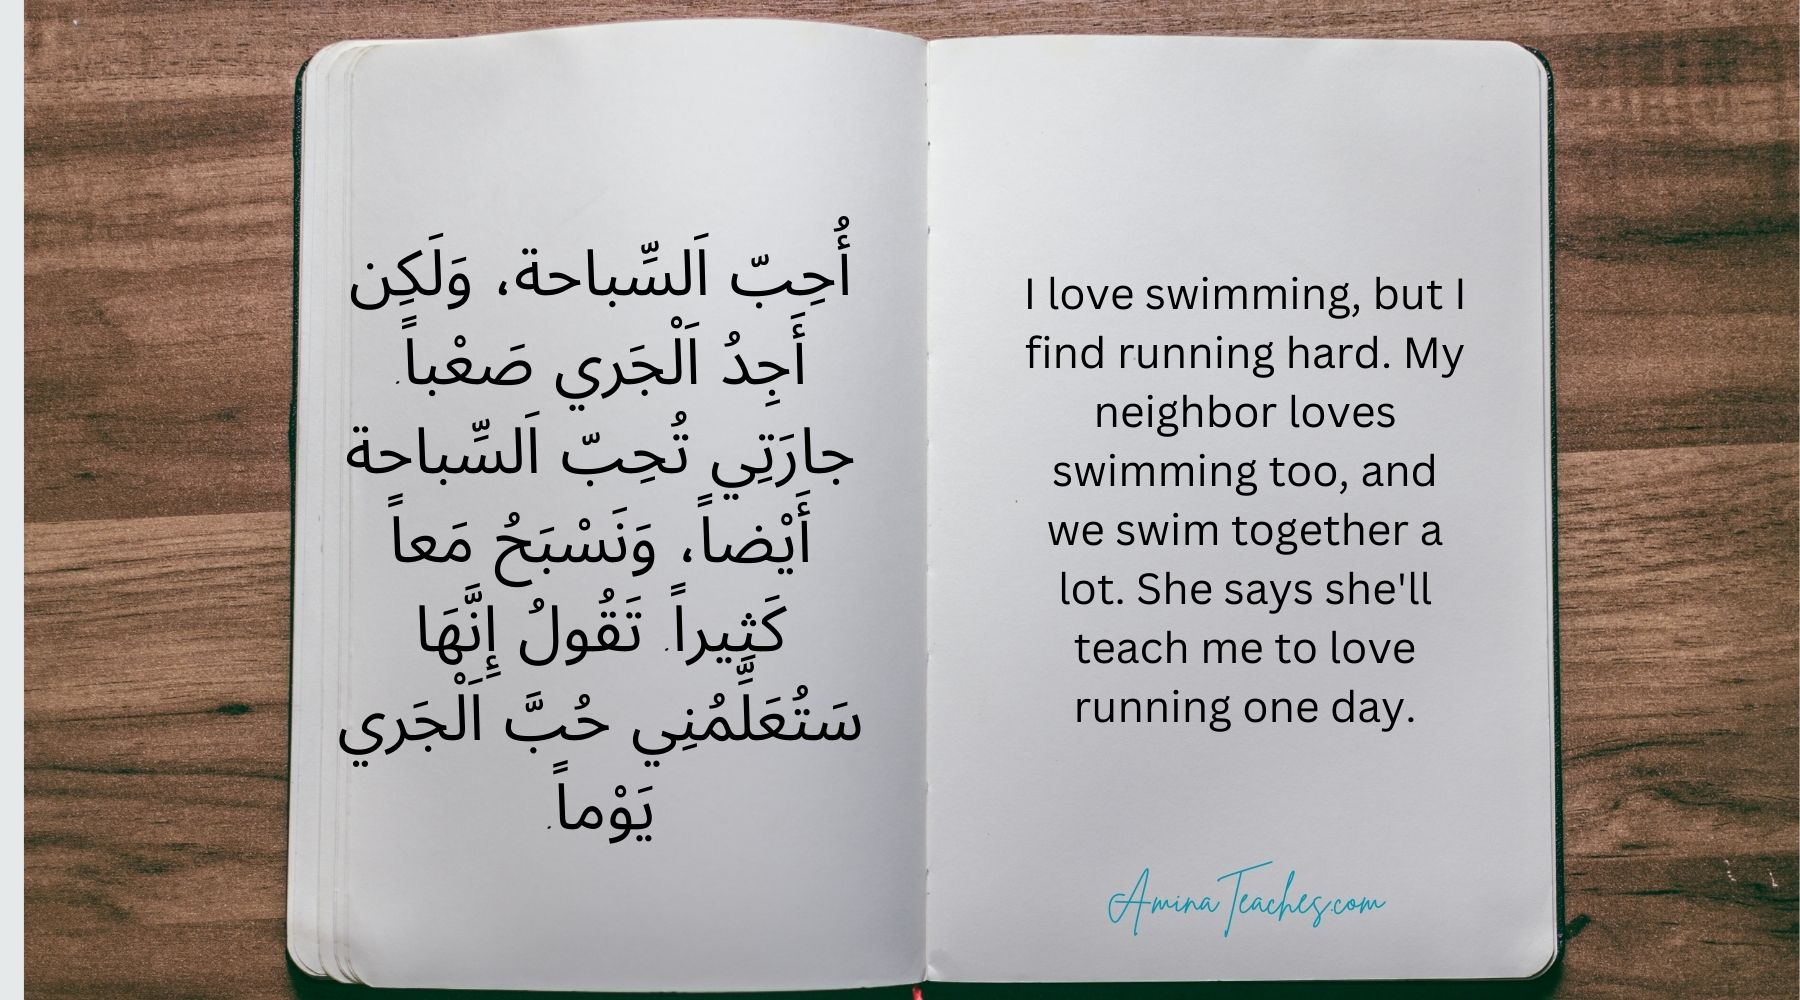 أُحِبّ اَلسِّباحة، وَلَكِن
أَجِدُ اَلْجَري صَعْباً.
جارَتِي تُحِبّ اَلسِّباحة
أَيْضاً، وَنَسْبَحُ مَعاً
كَثِيراً. تَقُولُ إِنَّهَا
سَتُعَلِّمُنِي حُبَّ اَلْجَري
يَوْماً.
I love swimming, but I
find running hard. My
neighbor loves
swimming too, and
we swim together a
lot. She says she'll
teach me to love
running one day.
AminaTeaches.com